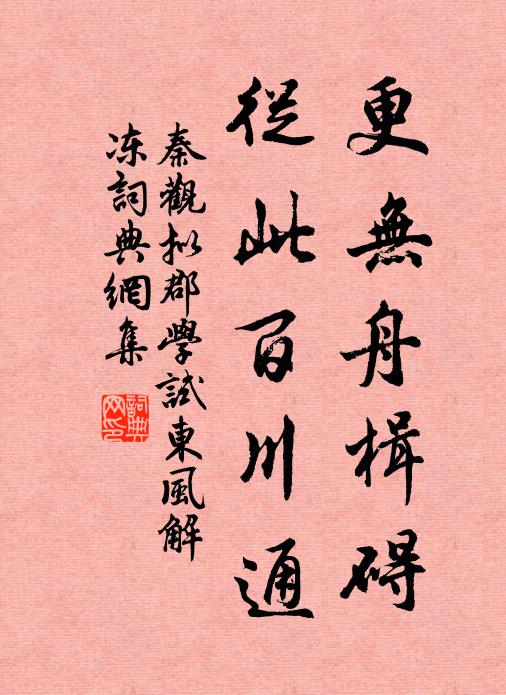 更無舟楫礙
從此百川通
秦觀拟郡學試東風解
冻詞典網集
詞典
网印